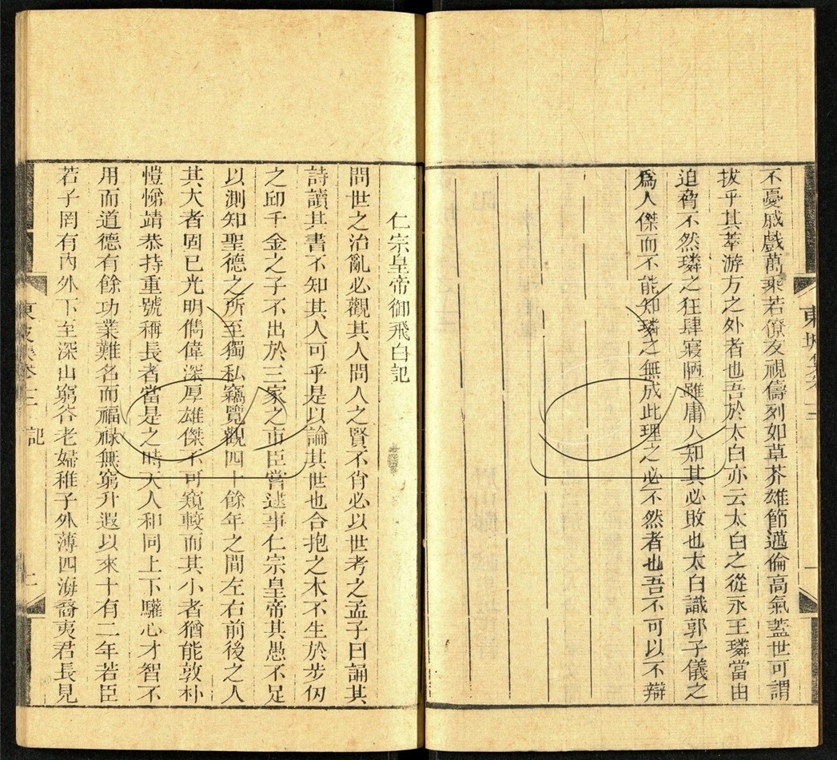 不憂戚戲萬乘若僚友視儔列如草芥雄節邁倫高氣蓋世可謂
拔乎其萃游方之外者也吾於太白亦云太白之從永王璘當由
迫脅不然璘之狂肆寢陋雖庸人知其必敗也太白識郭子儀之
為人傑而不能知璘之無成此理之必不然者也吾不可以不辯
仁宗皇帝御飛白記
問世之治亂必觀其人問人之賢不肖必以世考之孟子曰誦其
詩讀其書不知其人可乎是以論其世也合抱之木不生於步仞
之邱千金之子不出於三家之市臣嘗逮事仁宗皇帝其愚不足
以測知聖德之所至獨私竊覽觀四十餘年之間左右前後之人
其大者固已光明儁偉深厚雄傑不可窺較而其小者猶能敦朴
愷悌靖恭持重號稱長者當是之時天人和同上下驩心才智不
用而道德有餘功業難名而福祿無窮升遐以來十有二年若臣
若子罔有內外下至深山窮谷老婦稚子外薄四海裔夷君長見
記